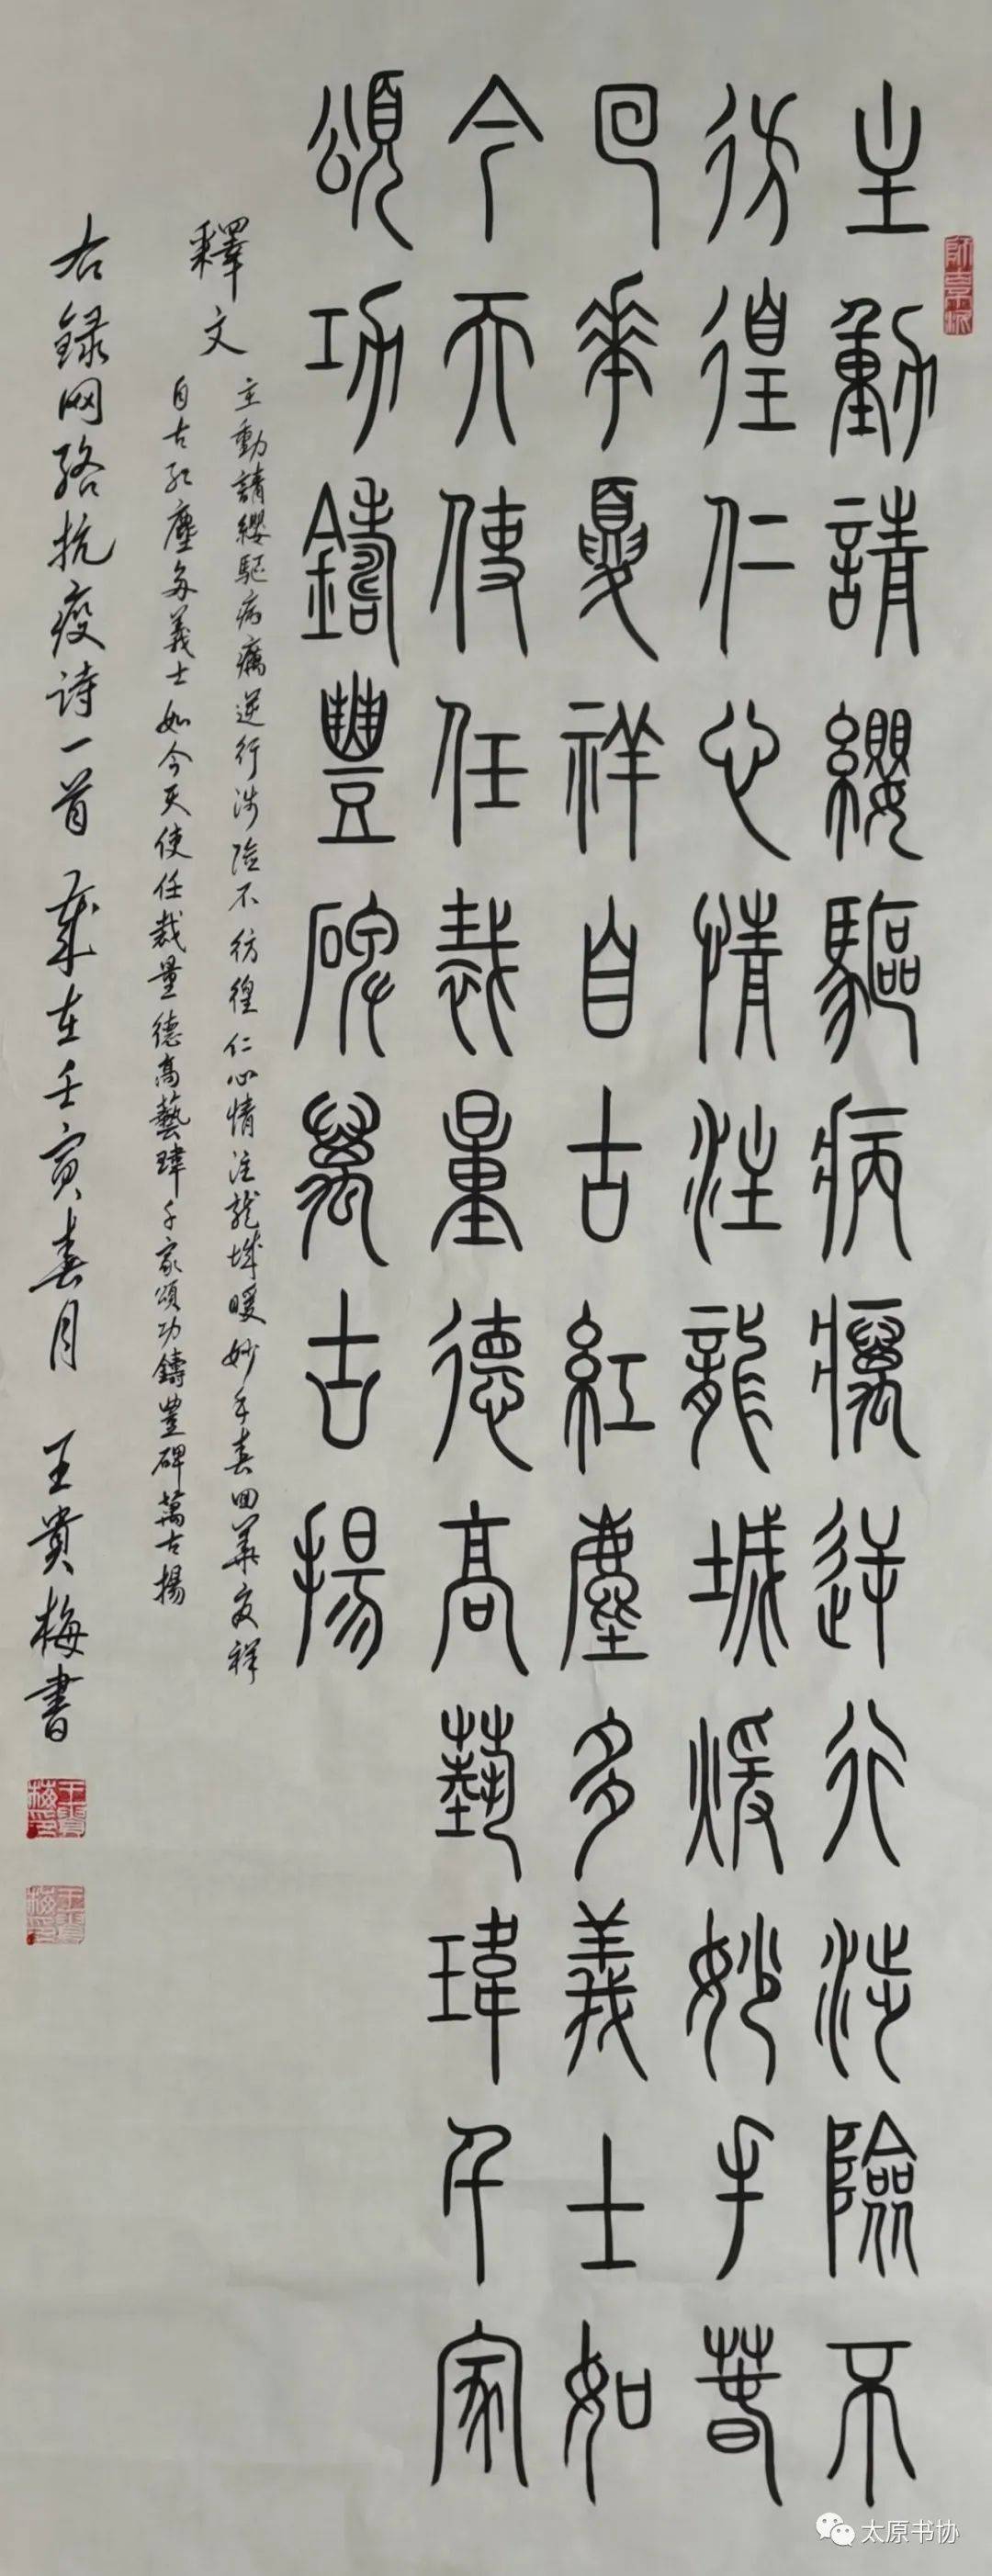 主動請纓驅病癘逆行涉險不
彷徨仁心情注龍城煖妙手春
回華夏祥自古紅塵多義士如
今天使任裁量德高藝瑋千家
頌功鑄豐碑萬古揚
釋文
主動請纓驅病癘逆行涉險不彷徨仁心情注龍城暖妙手春回華夏祥
自古紅塵多義士如今天使任裁量德高藝瑋千家頌功鑄豐碑萬古揚
右録网络抗疫诗一首 歲在壬寅春月 王貴梅書
王貴梅印
王貴梅印
太原书协